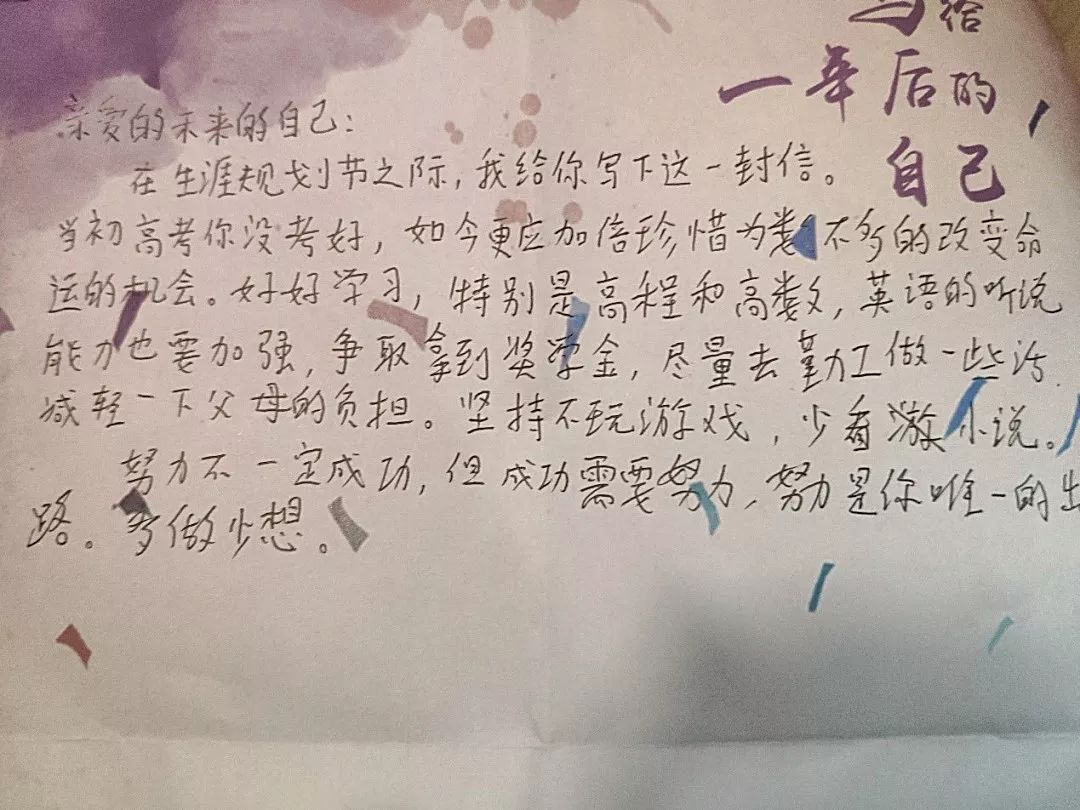 写给
一年后的
自己
亲爱的未来的自己：
在生涯规划节之际，我给你写下这一封信。
当初高考你没考好，如今更应加倍珍惜为数不多的改变命
运的机会。好好学习，特别是高程和高数，英语的听说
能力也要加强，争取拿到奖学金，尽量去勤工做一些活
减轻一下父母的负担。坚持不玩游戏，少看小说。
努力不一定成功，但成功需要努力，努力是你唯一的出
路。多做少想。